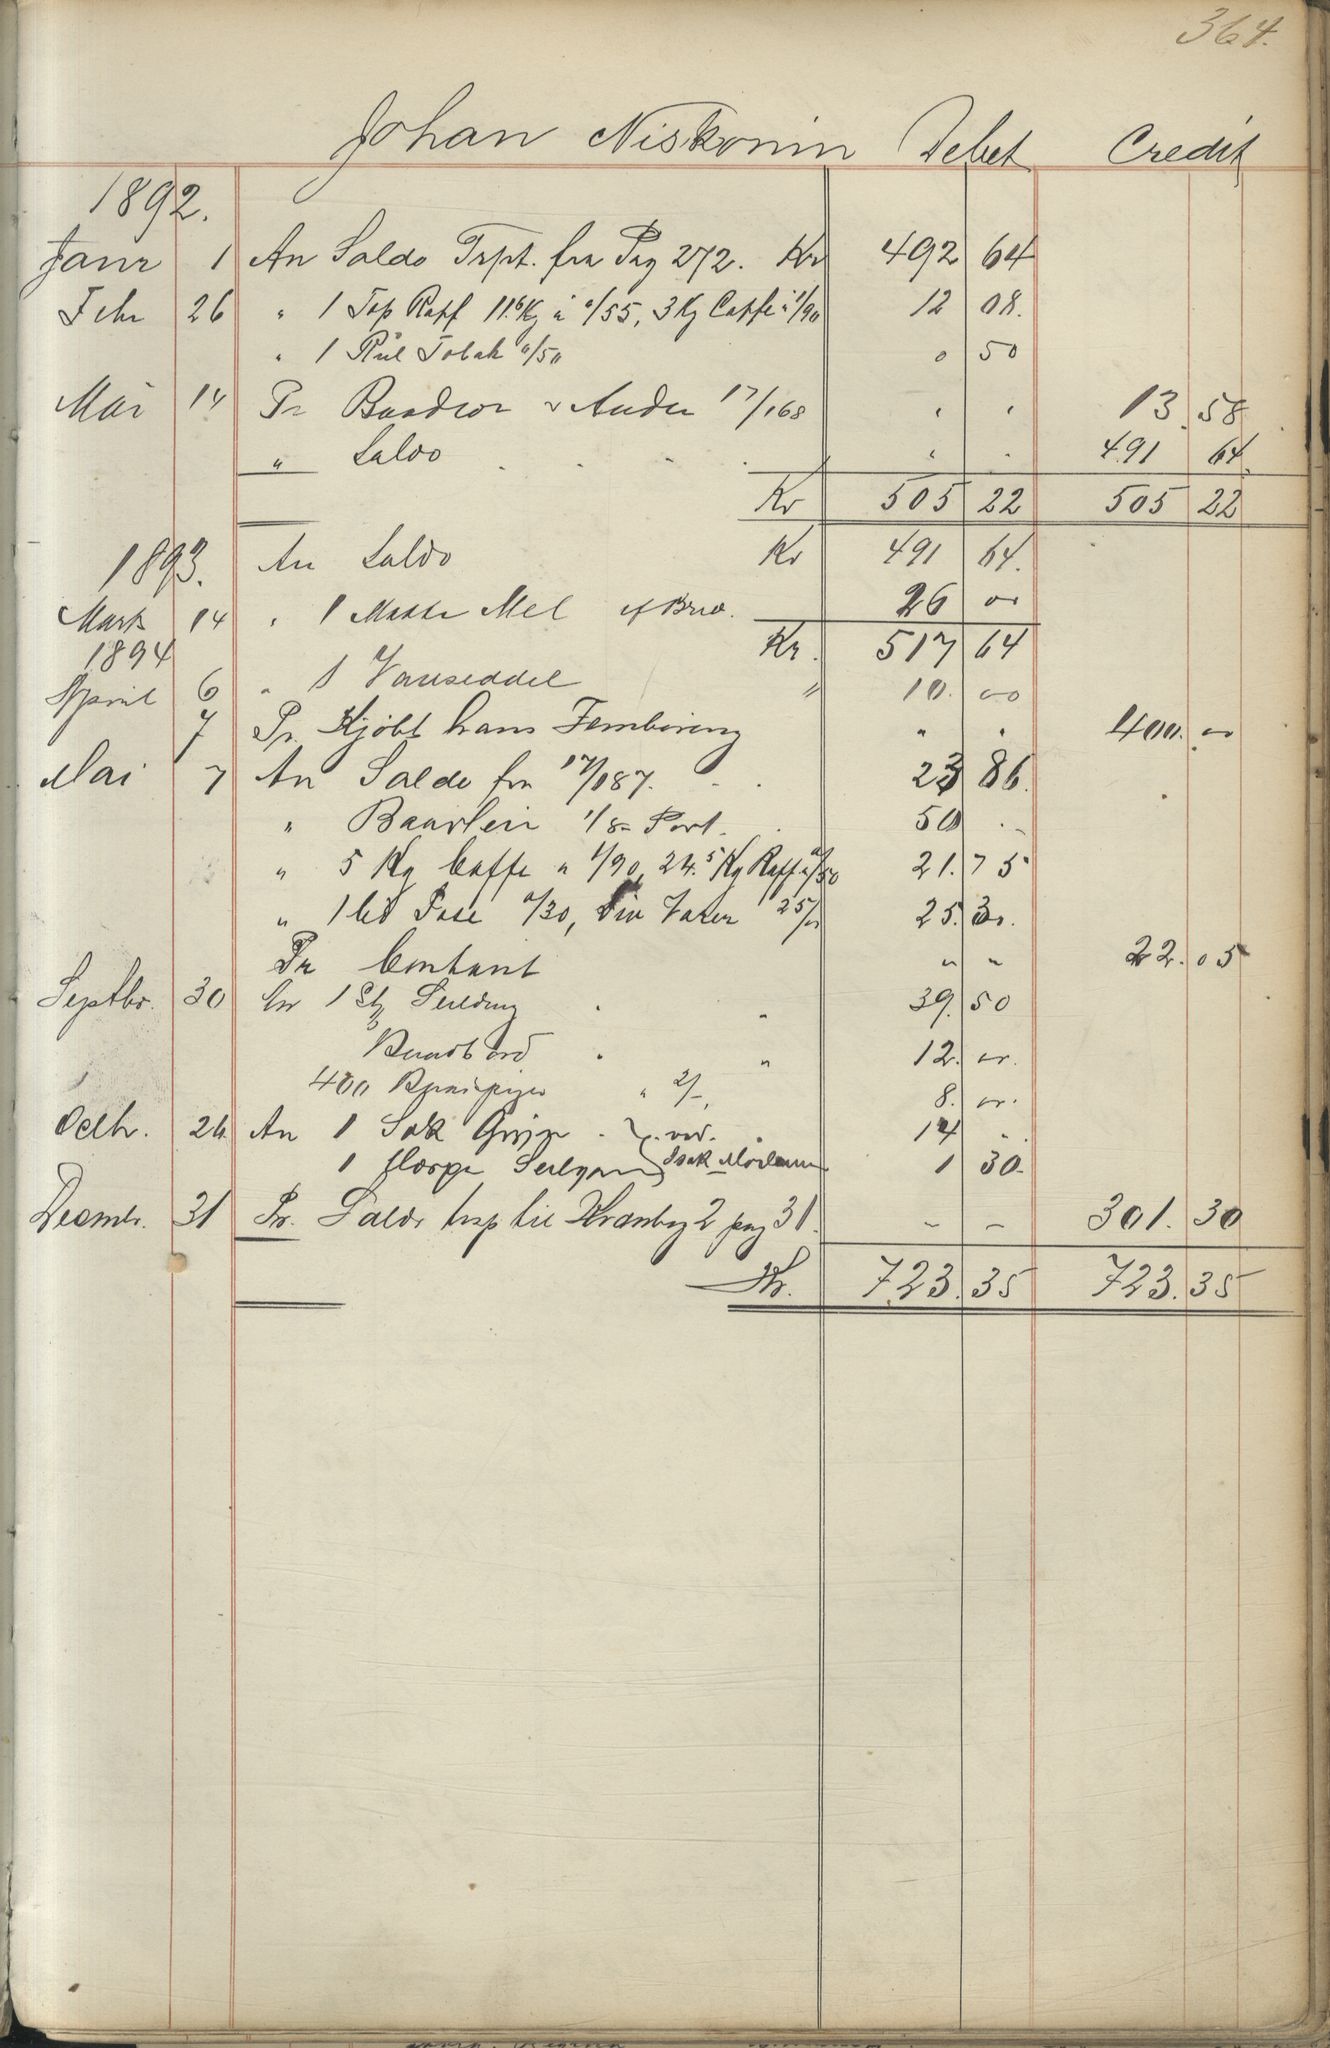 364.
Johan Niskonin Debet Credit
1892.
Janr 1 An Saldo Trpt. fra Pag 272. Kr 492 64
Febr 26 " 1 Top Kaff 11.6 Kg a "/55, 3 Kg Caffe a 1/90 12 08.
" 1 Rul Tobak "/50 0 50
Mai 14 Pr 17/168 " " 13. 58
" Saldo . . . . " . 491 64.
Kr 505 22 505 22
1893. An Saldo Kr 491 64.
Marts 14 " 1 Matte Mel 26 00
1894 Kr. 517 64
April 6 " 1 Vareseddel " 10. 00
7 Pr. Kjöbt hans Femböring " " 400. 00
Mai 7 An Saldo fra 17/187. . . 23 86.
" 1/8 Part. . 50 . -
" 5 Kg Caffe a 1/90, 24.5 Kg Kaff a "/50 21. 75
" 1 Pose "/30, Div Varer 25/00 25. 30.
Pr Contant " " 22. 05
Septbr. 30 An 1 Seilduug . " 39. 50
. " 12. 00.
400 " 2/-, 8. 00.
Octbr. 26. An 1 Sæk Gryn . } . ved. . 14 . .
1 Isak 1 30.
Decembr. 31 Pr. Saldo trsp til Kravbog 2 pag 31. - - 301. 30
Kr. 723. 35 723. 35